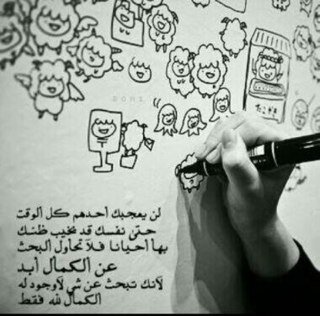 لن يعجبك أحدهم كل الوقت
حتى نفسك قد يخيب ظنك
بها أحيانا فلا تحاول البحث
عن الكمال أبد
لأنك تبحث عن شي لاوجود له
الكمال لله فقط